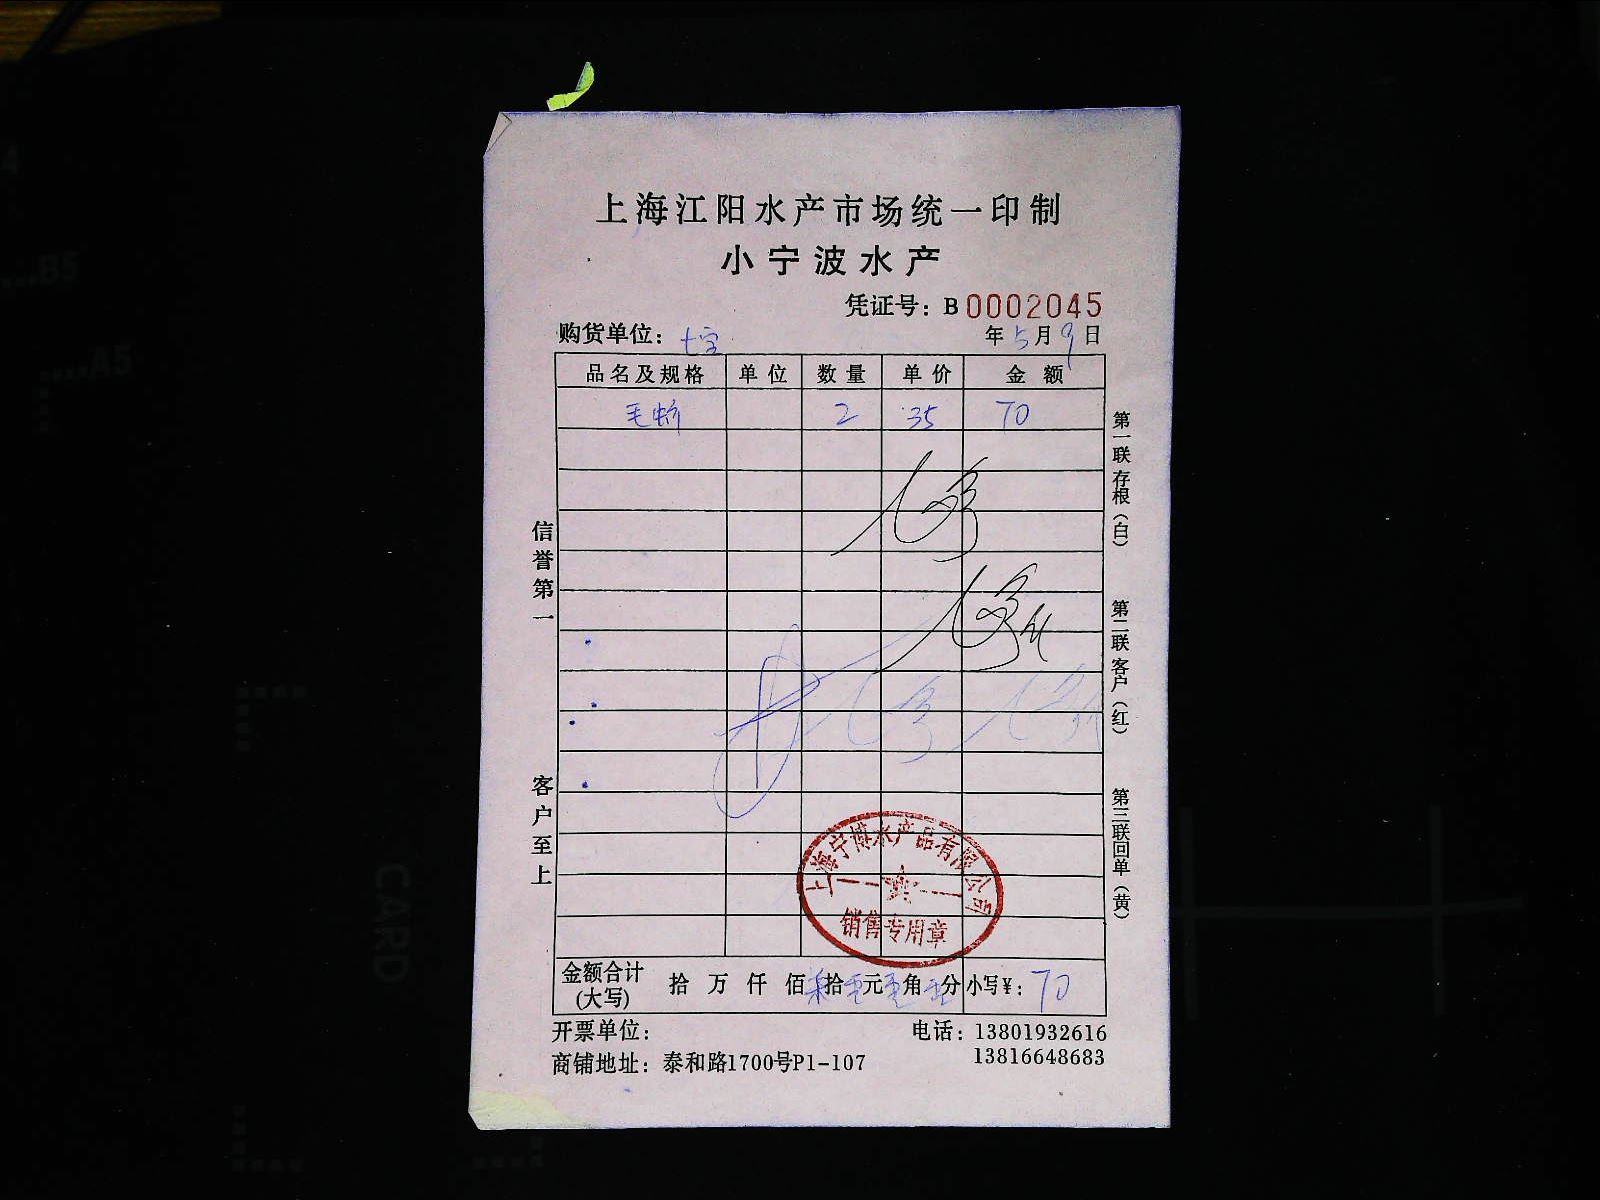 上海江阳水产市场统一印制
小宁波水产
凭证号：B0002045
购货单位：七宝
年5月9日
品名及规格 单位 数量 单价 金额
毛蚶 2 35 70
信誉第一
客户至上
第一联存根（白）
第二联客户（红）
第三联回单（黄）
上海宁博水产品有限公司
销售专用章
金额合计(大写) 拾 万 仟 佰 柒拾零元零角零分 小写¥：70
开票单位：
电话：13801932616
13816648683
商铺地址：泰和路1700号P1-107
CARD
B5
A5